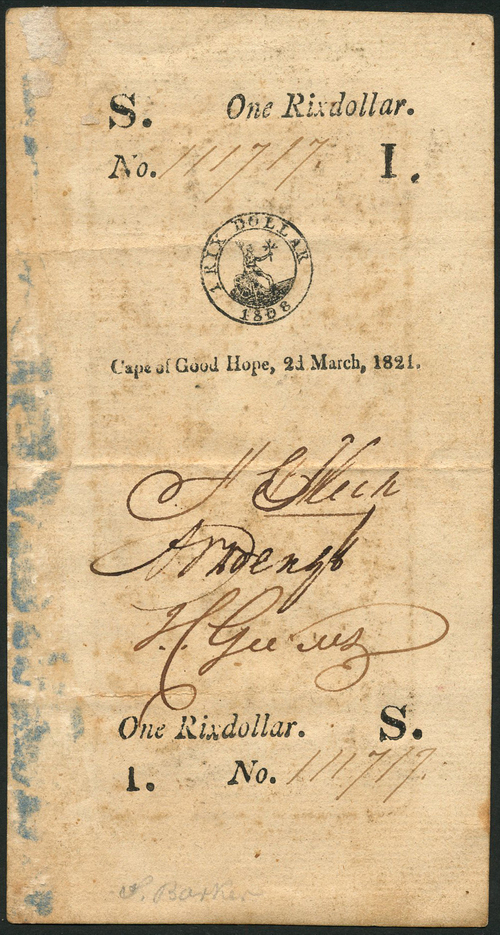 S. One Rixdollar.
No. 111717. I.
1 RIX DOLLAR
1808
Cape of Good Hope, 2d March, 1821.
One Rixdollar. S.
1. No. 111717.
S. Barker